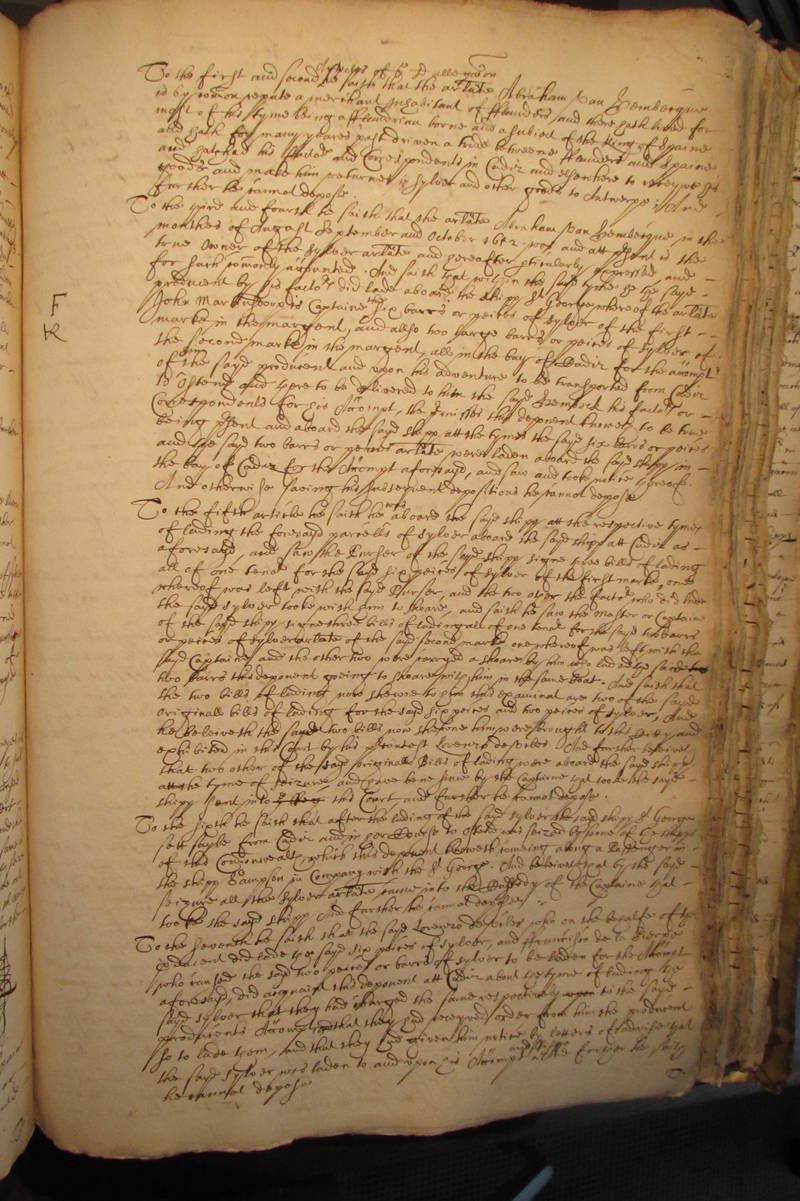 To the first and second he saith that the arlate Abraham Van Hembergue
articles of the sd allegation
is by comon repute a merchant Inhabitant of fflanders and there hath lived for
most of his tyme being a fflandrian borne and a subiect of the King of Spaine
and hath for many yeares past driven a trade betweene fflanders and Spaine
and hath had his ffactors and Correspondents in Cadiz and elsewhere to receyve his
goods and make him returnes in sylver and other goods to Antwerpe, And
further he cannot depose.
To the third and fourth he saith that the arlate Abraham Van Hembergue in the
monthes of August September and October 1652 was and att present is the
true Owner of the sylver arlate and hereafter pticularly expressed and
for such comonly accounted. And saith that within the sayd tyme the sayd
producent by his factor did lade aboard the shipp St George whereof the arlate
John Martinson is Captaine the six barrs or peices of sylver of the first
F
K
marke in the margent, and allso two large barrs or peices of sylver, of
the second marke in the margent, all in the bay of Cadiz for the accompt
of the sayd producent and upon his adventure to be transported from Cadiz
to Ostend and there to be delivered to him the sayd his factors or
Correspondents for his Accompt, the premisses this deponent knoweth to be true
being psent and aboard the sayd shipp att the tymes the sayd six barrs or peices
and the sayd two barrs or peices arlate were laden aboard the sayd shipp in
the bay of Cadiz for the Accompt aforesayd, and saw and tooke notice thereof.
And otherwise saving his subsequent depositions he cannot depose
To the fifth article he saith he was aboard the sayd shipp att the respective tymes
of lading the foresayd parcells of sylver aboard the sayd shipp att Cadiz as
aforesayd, and saw the Purser of the sayd shipp signe three bills of lading
all of one tenor for the sayd six peices of sylver of the first marke, one
whereof was left with the sayd Purser, and the two other the factor who did lade
the sayd sylver tooke with him to shoare, and saith he saw the Master or Captaine
of the sayd shipp signe three bills of lading all of one tenor for the sayd two barrs
or peices of sylver arlate of the sayd second marke one whereof was left with the
sayd Captaine and the other two were carryed a shoare by him who laded the said
two barrs this deponent going to shoare with him in the same boat. And saith that
the two bills of lading now shewne to him this examinat are two of the sayd
originall bills of lading for the said six peices and two peices of sylver, And
he beleiveth the sayd two bills now shewne him were brought to this Citty and
exhibited in this Court by his Lorenzo . And further beleives
that two other of the sayd originall Bills of lading were aboard the sayd shipp
att the tyme of seizure, and have bene since by the Captaine that tooke the sayd
shipp sent into this Court, and further he cannot depose.
To the sixth he saith that after the lading of the said sylver the said shipp St George
sett sayle from Cadiz and in her Course to Ostend was seized by some of the shipps
of this Comonwealth, which this deponent knoweth coming along a Passenger in
the shipp Sampson in Company with the St George. And beleives that by the sayd
seizure all the sylver arlate came into the Custody of the Captaine that
tooke the sayd shipp And further he cannot depose.
To the seventh he saith that the sayd Lorenzo who on the behalfe of the
producent did lade the sayd six peices of sylver, and ffrancisco de la
who caused the said two peices or barrs of sylver to be laden for the Accompt
aforesaid, did acquaint this deponent att Cadiz about the tyme of lading the
sayd sylver that they had charged the same respectively to the sayd
producents Accompt and that they had receyved order from him the producent
so to lade them, and that they had given him notice by letters of advise that
the sayd sylver was laden to and upon his Accompt and Further he saith
he cannot depose